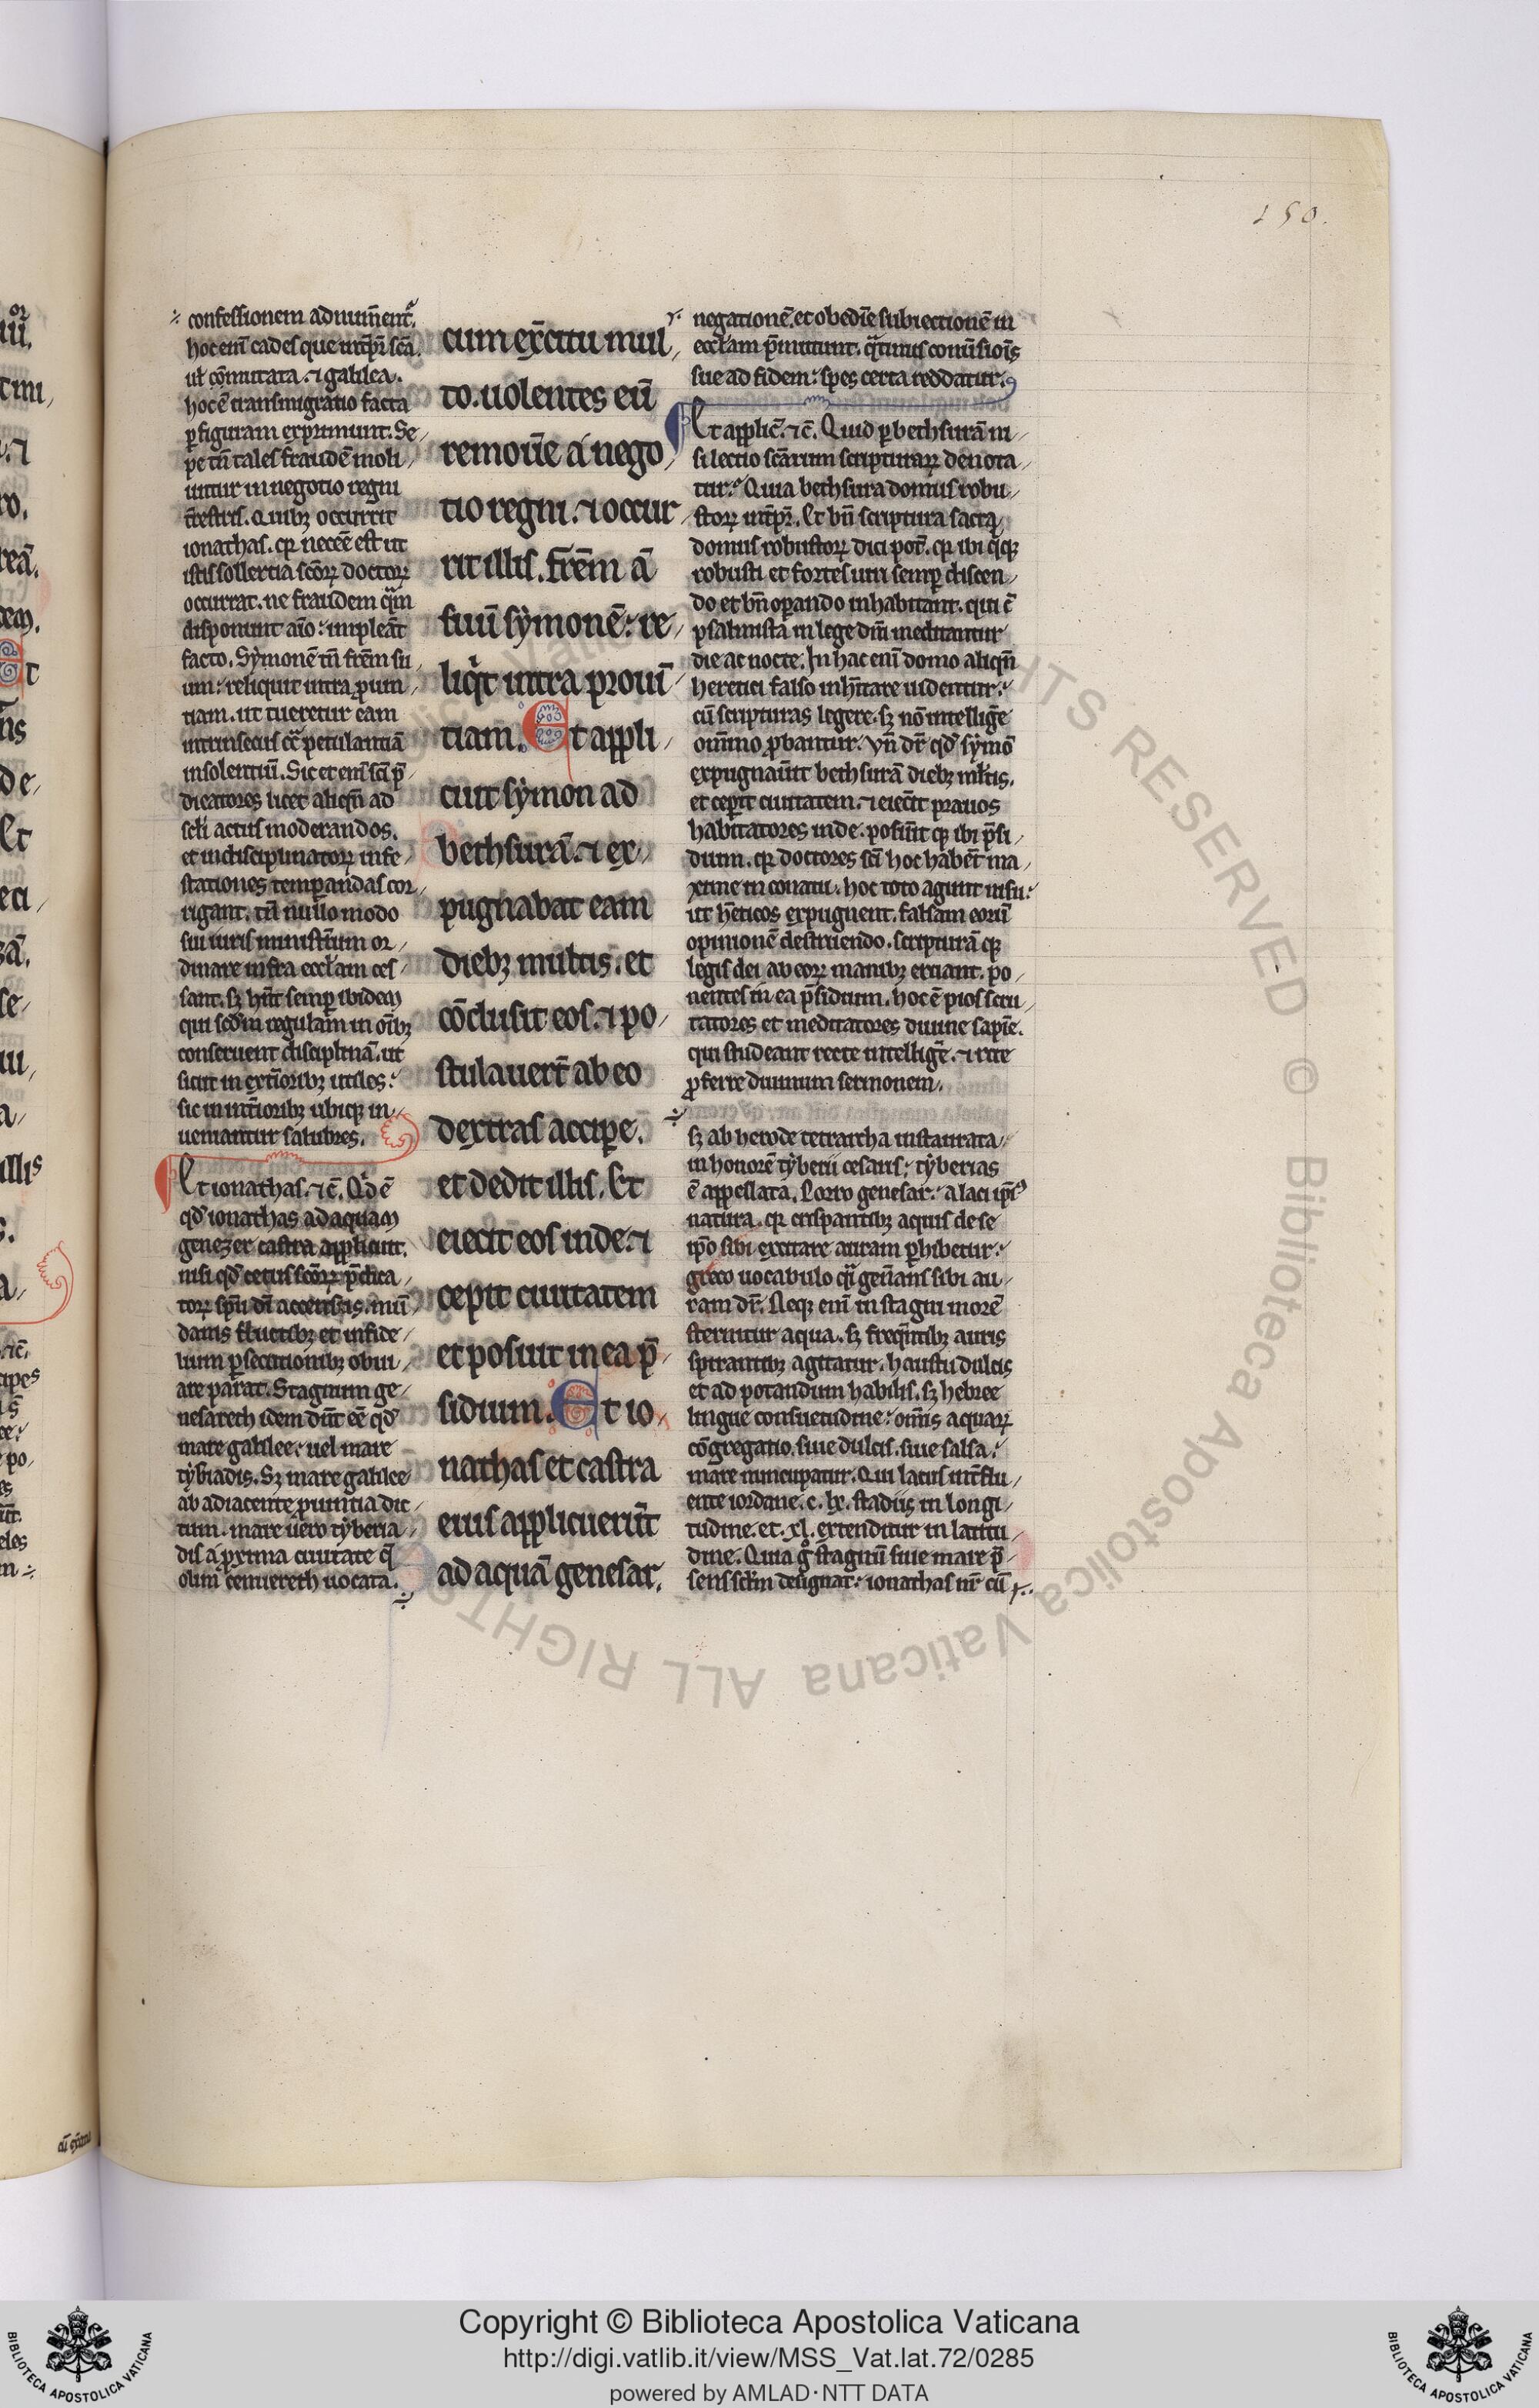 150.
confessionem aduiument̄.
hoc enī cades que int̄pr̄ scā
ul̄ cōmutata. ⁊ galilea.
hoc ē transmigratio facta
p̲ figuram exprimunt. Se
pe tn̄ tales fraudē moli
untur in negotio regni
t̄restris. Quibꝫ occurrit
ionathas. qꝛ neceē est ut
istis sollertia scōꝝ doctoꝝ
occurrat. ne fraudem quā
disponunt aīo: impleāt
facto. Symonē tn̄ frēm su
um: reliquit intra prouin
tiam. ut tueretur eam
intrinsecus
insolentiū. Sic et enī scī p̄
dicatores licet aliqn̄ ad
sc̄li actus moderandos.
et indisciplinatoꝝ infe
stationes temperandas cor
rigant. tn̄ nullo modo
sui iuris minist̄ium or
dinare infra eccl̄iam ces
sant. sꝫ hn̄t semp̲ ibidem
qui scd̄m regulam in oībꝫ
conseruent disciplinā. ut
sicut in ext̄ioribꝫ utiles:
sic in int̄ioribꝫ ubiqꝫ in
ueniantur salubres.
Et ionathas. ⁊c̄. Qd̄ ē
qd̄ ionathas ad aquam
genezer castra applicuit.
nisi qd̄ cetus scōꝝ p̄dica
toꝝ sp̄u dī accensus. mū
danis fluctibꝫ et infide
lium p̲secutionibꝫ obui
are parat. Stagnum ge
nesareth idem dn̄t eē qd̄
mare galilee: uel mare
tyb̄iadis. Sꝫ mare galilee
ab adiacente prouintia dic
tum. mare uero tyberia
dis a proxima ciuitate q̄
olim cennereth uocata.
cum ex̄citu mul
to. uolentes eū
remoūe a nego
tio regni. ⁊ occur
rit illis. frēm ā
suū symonē: re
liqͥt intra prouī
tiam. Et appli
cuit symon ad
bethsurā. ⁊ ex
pugnabat eam
diebꝫ multis. et
cōclusit eos. ⁊ po
stulauerт̄ ab eo
dextras accip̲e.
et dedit illis. Et
eiecit eos inde. ⁊
cepit ciuitatem
et posuit in ea p̄
sidium. Et io
nathas et castra
eius applicuerūt
ad aquā genesar.
negationē. et obediē subiectionē in
eccl̄iam p̄mittunt. qͣtinus conūsiois
sue ad fidem: spes certa reddatur.
Et applic̄. ⁊c̄. Quid p̲ bethsurā ni
si lectio scārum scripturaꝝ denota
tur. Quia bethsura domus robu
stoꝝ int̄pr̄. Et bn̄ scriptura sacra
domus robustoꝝ dici pot̄. qꝛ ibi qͥqꝫ
robusti et fortes uiri semp̲ discen
do et bn̄ op̲ando inhabitant. qui c̄
psalmista in lege dn̄i meditantur
die ac nocte. In hac enī domo aliqn̄
heretici falso inh̄itare uidentur.
cū scripturas legere. sꝫ nō intelliḡe
omīno p̲bantur. Vn̄ dr̄ qd̄ symō
expugnaūit bethsurā diebꝫ ml̄tis.
et cepit ciuitatem. ⁊ eiecit prauos
habitatores inde. posuit qꝫ ibi p̄si
dium. qꝛ doctores scī hoc habēt ma
xime in conatu. hoc toto agunt nisu:
ut h̄eticos expugnent. falsam eorū
opinionē destruendo. scripturā qꝫ
legis dei ab eoꝝ manibꝫ eruant. po
nentes in ea p̄sidium. hoc ē pios scru
tatores et meditatores diuine sapiē.
qui studeant recte intelliḡe. ⁊ rcte
p̲ferre diuinum sermonem.
sꝫ ab herode tetrarcha instaurata
in honorē tyberii cesaris: tyberias
ē appellata. Porro genesar: a laci ipīꝰ
natura. qꝛ crispantibꝫ aquis de se
ip̄o sibi excitare auram p̲hibetur:
greco uocabulo qͣi gen̄ans sibi au
ram dr̄. Neqꝫ enī in stagni morē
sternitur aqua. sꝫ freqn̄tibꝫ auris
spirantibꝫ agitatur. haustu dulcis
et ad potandum habilis. sꝫ hebree
lingue consuetudine: omīs aquaꝝ
cōgregatio. siue dulcis. siue salsa:
mare nuncupatur. Qui lacus int̄flu
ente iordane. c. lx. stadiis in longi
tudine. et. xl. extenditur in latitu
dine. Quia gͦ stagnū siue mare p̄
sens sc̄lm designat: ionathas nr̄ cū
Copyright © Biblioteca Apostolica Vaticana
http://digi.vatlib.it/view/MSS_Vat.lat.72/0285
powered by AMLAD·NTT DATA
BIBLIOTECA APOSTOLICA VATICANA
BIBLIOTECA APOSTOLICA VATICANA
© Biblioteca Apostolica Vaticana ALL RIGHTS RESERVED